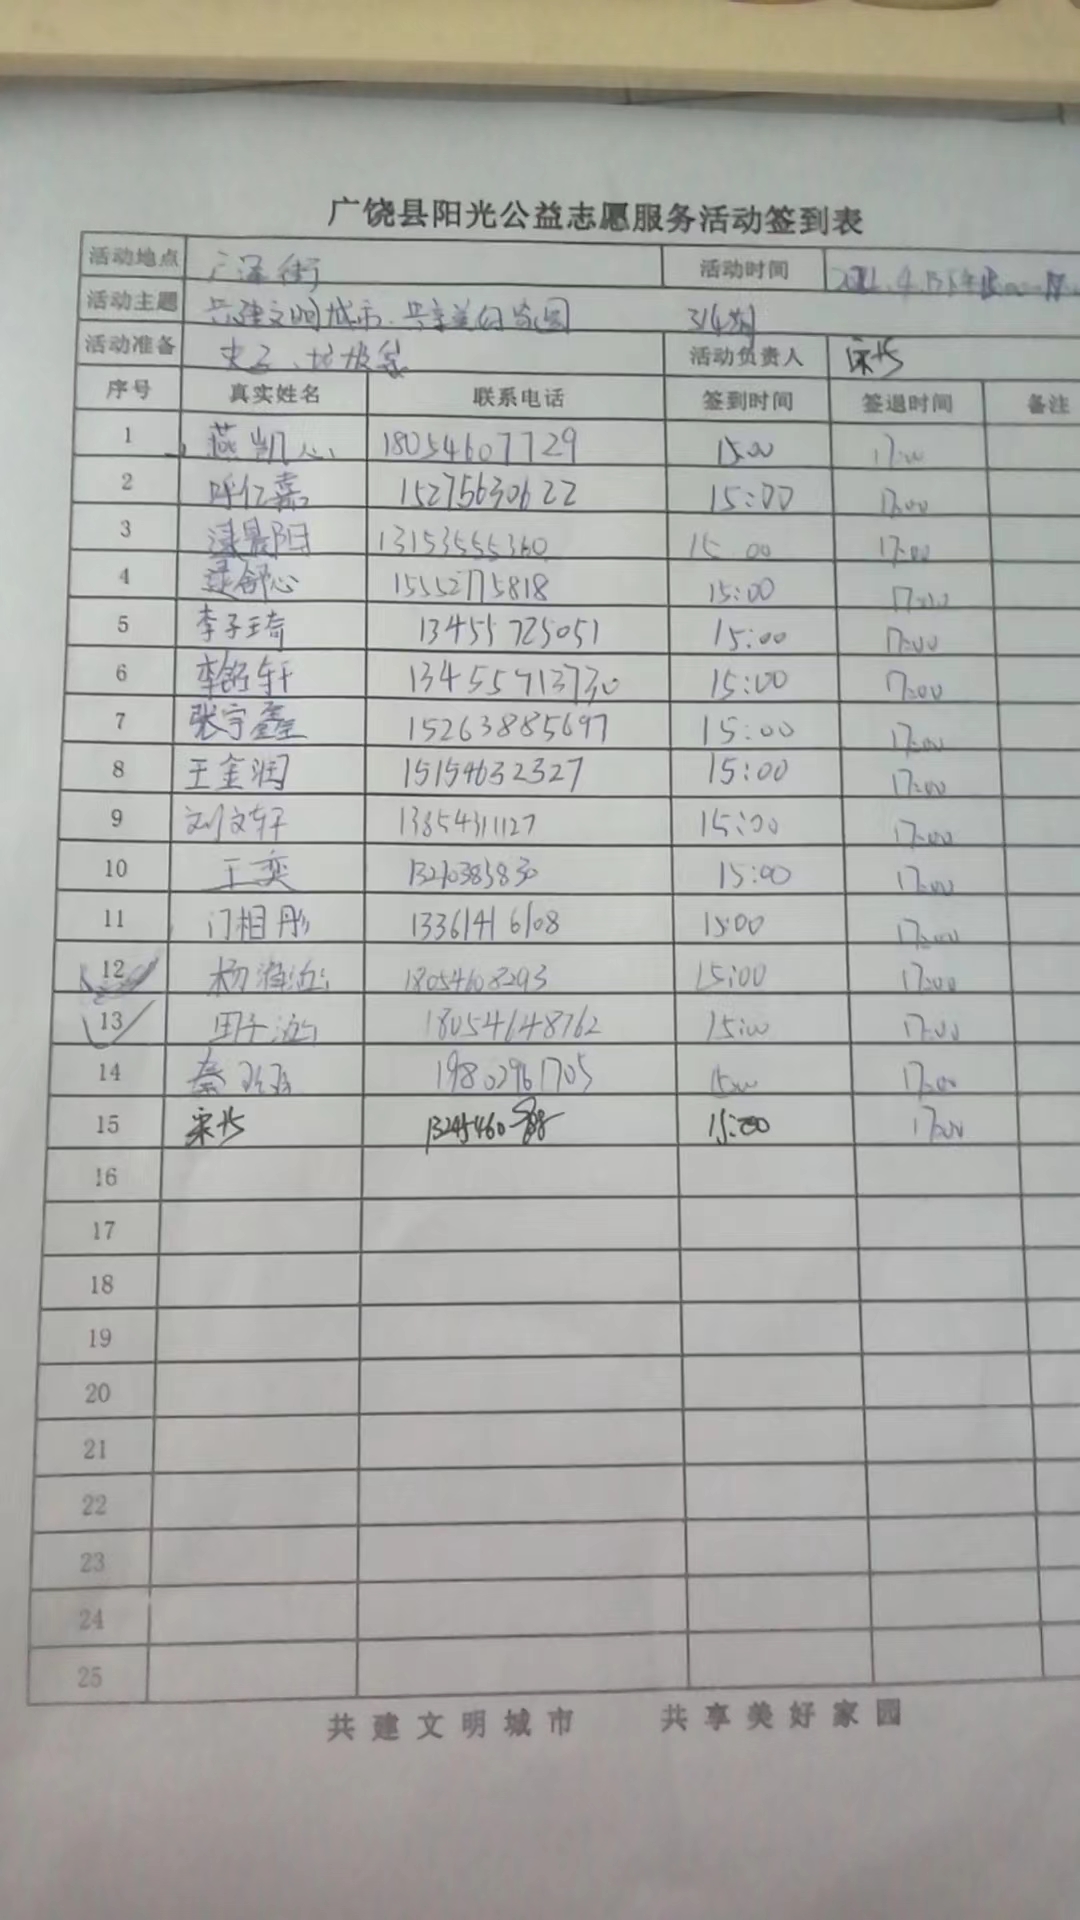 广饶县阳光公益志愿服务活动签到表
活动地点 街 活动时间
活动主题 共建文明城市、共享美好家园 314期
活动准备 夹子、垃圾袋 活动负责人
序号 真实姓名 联系电话 签到时间 签退时间 备注
1 燕凯心 18054607729 15:00 17:00
2 呼亿嘉 15275630622 15:00 17:00
3 13153555360 15:00 17:00
4 舒心 15552775818 15:00 17:00
5 李子琦 13455725051 15:00 17:00
6 李舒轩 13455713730 15:00 17:00
7 张宇鑫 15263885697 15:00 17:00
8 王金润 15154632327 15:00 17:00
9 刘文轩 13854311127 15:00 17:00
10 王奕 13210385830 15:00 17:00
11 门相彤 13361416108 15:00 17:00
12 杨 18054608293 15:00 17:00
13 田子 18054648762 15:00 17:00
14 秦 19802961705 15:00 17:00
15 15:00 17:00
16
17
18
19
20
21
22
23
24
25
共建文明城市 共享美好家园